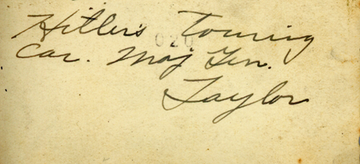 Hitler's Touring
Car. Maj Gen.
Taylor